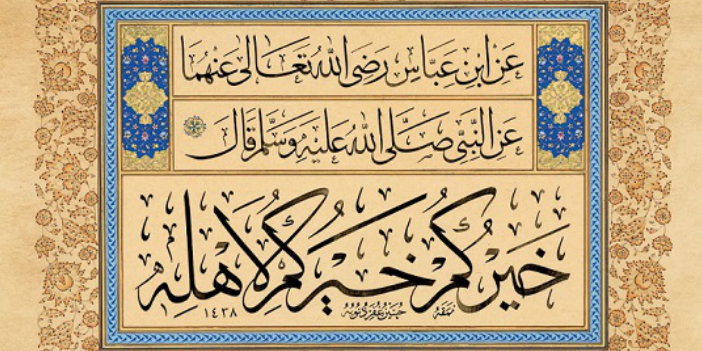 عَنِ ابْنِ عَبَّاسٍ رَضِيَ اللّٰهُ تَعَالَى عَنْهُمَا
عَنِ النَّبِيِّ صَلَّى اللّٰهُ عَلَيْهِ وَسَلَّمَ قَالَ
خَيْرُكُمْ خَيْرُكُمْ لِأَهْلِهِ
نمقه حسين ١٤٣٨